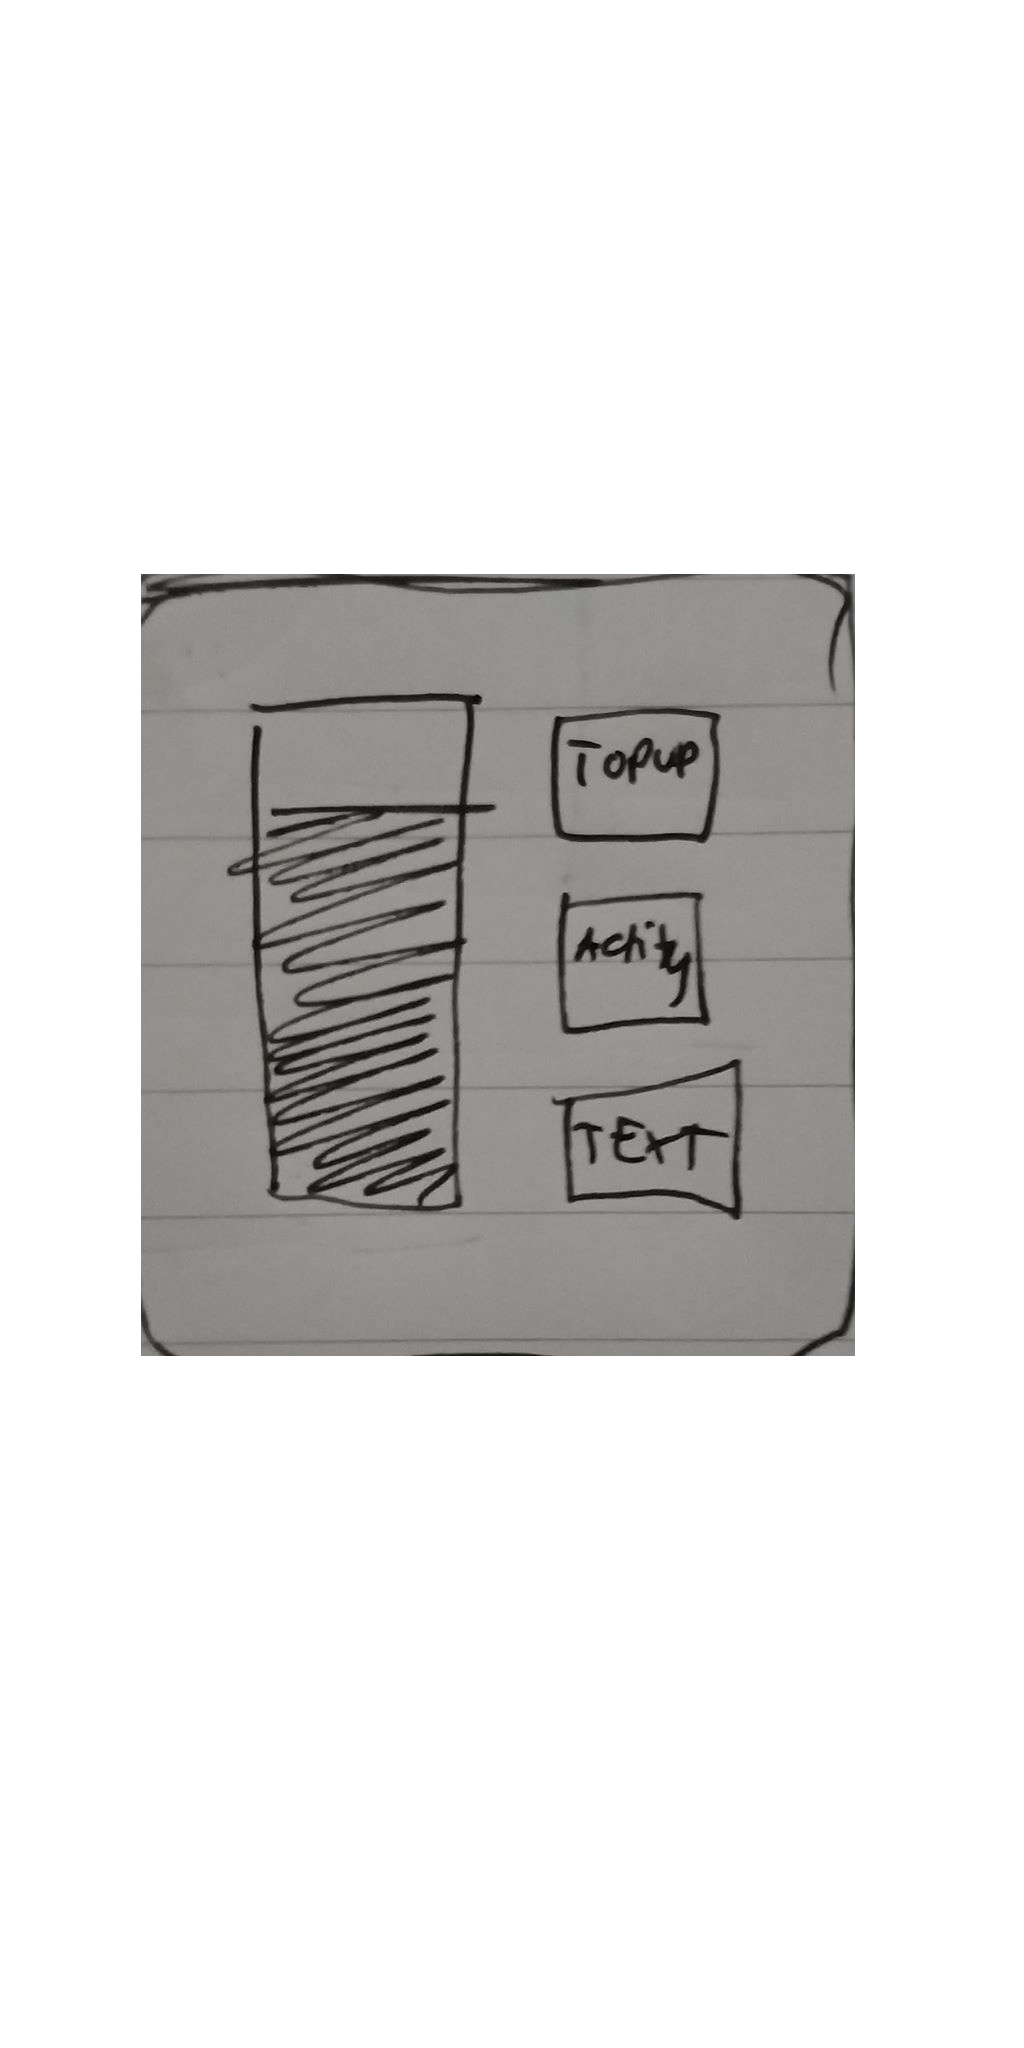 Topup
Activity
TEXT